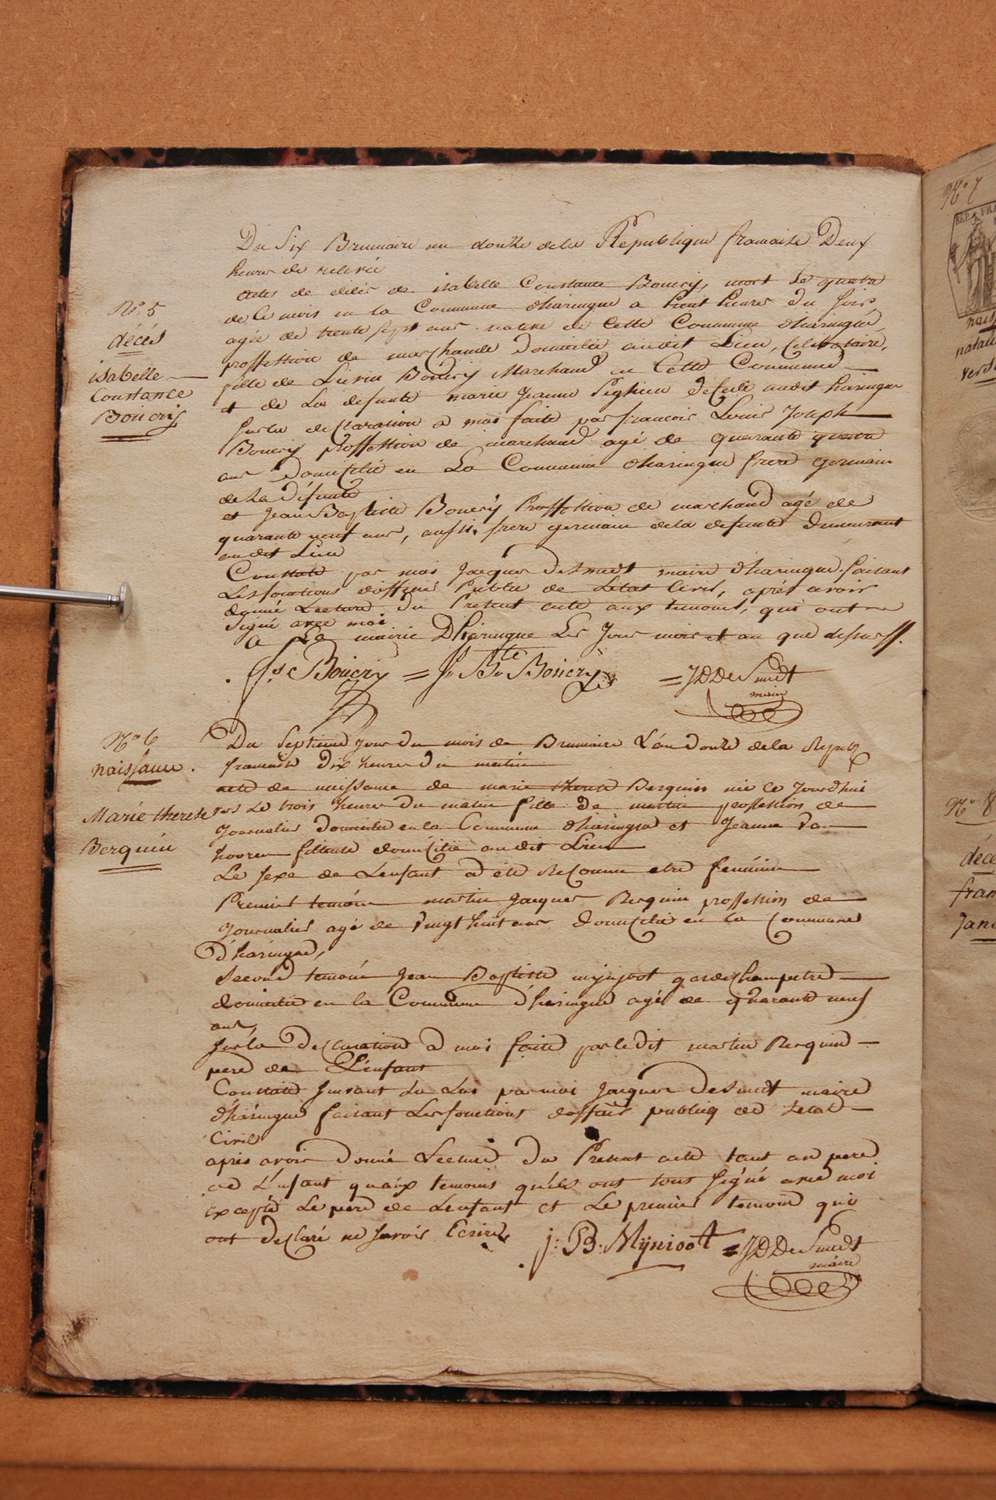 Du Six Brumaire an douze de la Republique francaise Deux
heures de relevée
N° 5
décés
isabelle
Constance
Boucry
Actes de décès de isabelle Constance Boucry, mort Le quatre
de Ce mois en la Commune d'haringue a huit heures du soir,
agée de trente sept ans, native de Cette Commune d'haringue,
proffession de marchande Domiciliée audit Lieu, Celibataire,
fille de Livin Boucry Marchand en Cette Commune
et de La defunte marie Jeanne decedé audit haringue
Sur la declaration à moi faite par francois Louis Joseph
Boucry proffession de marchand agé de quarante quatre
ans Domicilié en La Commune d'haringue frere germain
de La Défunte
et Jean Baptiste Boucry Proffession de marchand agé de
quarante neuf ans, aussi frere germain de la defunte Demeurant
audit Lieu
Constaté par moi Jacques De Smedt maire d'haringue faisant
Les fonctions d'officier Public de L'etat Civil, aprés avoir
donné Lecture du Present acte aux temoins, qui ont
Signé avec moi
a La mairie D'haringue Les Jour mois et an que dessus.
Boucry = J. Bte Boucry = JD De Smedt
maire
N° 6
naissance.
Marie therese
Berquin
Du Septieme Jour du mois de Brumaire L'an douze de la Repub
francaise dix heures du matin
acte de naissance de marie therese Berquin née Ce Jourd'hui
vers Le trois heures du matin fille de martin proffession de
Journalier domicilié en la Commune d'haringue et Jeanne Van
hooren fileuse domicilié audit Lieu
Le Sexe de L'enfant a été Reconnu etre feminin
Premier temoin martin Jacques Berquin proffession de
Journalier agé de vingt huit ans domicilié en la Commune
D'haringue,
Second temoin Jean Baptiste mynioot garde Champetre
domicilié en la Commune d'haringue agé de quarante neuf
ans,
Sur la Declaration a moi faite par le dit martin Berquin
pere de L'enfant
Constaté Suivant La Loi par moi Jacques De Smedt maire
d'haringue faisant Les fonctions d'officier publiq de L'etat
Civil
aprés avoir donné Lecture du Present acte tant au pere
de L'enfant qu'aux temoins qu'ils ont tous Signé avec moi
excepté Le pere de L'enfant et Le premier temoin qui
ont declaré ne Savoir Ecrire
j: B: Mynioot = JD De Smedt
maire
N° 7
nais
natali
vers
N° 8
déce
fran
Jans